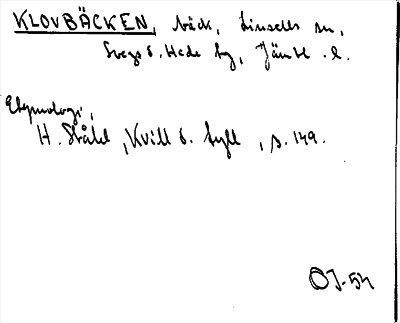 KLOVBÄCKEN, bäck, Linsells sn,
Svegs o. Hede tg, Jämtl. l.
Etymologi,
H. Ståhl, Kvill o. tyll, s. 149.
OJ-54